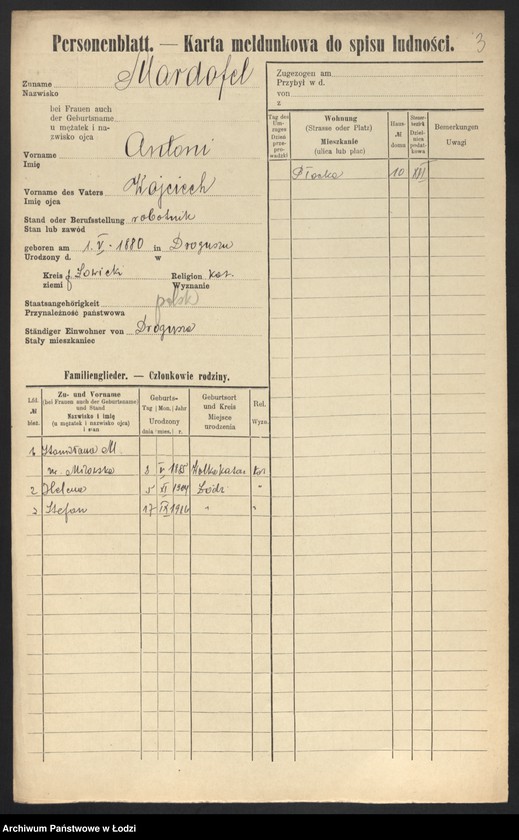 Personenblatt. — Karta meldunkowa do spisu ludności. 3
Zuname
Nazwisko Mardofel
bei Frauen auch
der Geburtsname
u mężatek i na-
zwisko ojca
Vorname Antoni
Imię
Vorname des Vaters Wojciech
Imię ojca
Stand oder Berufsstellung robotnik
Stan lub zawód
geboren am 1. V - 1880 in
Urodzony d. w
Kreis Łowicki Religion kat.
ziemi Wyznanie
Staatsangehörigkeit polsk
Przynależność państwowa
Ständiger Einwohner von
Stały mieszkaniec
Familienglieder. — Członkowie rodziny.
Lfd. № bież.
Zu- und Vorname
(bei Frauen auch der Geburtsname)
und Stand
Nazwisko i imię
(u mężatek i nazwisko ojca)
i stan
Geburts-
Tag | Mon. | Jahr
Urodzony
dnia | mies. | r.
Geburtsort
und Kreis
Miejsce
urodzenia
Rel.
Wyzn.
1 Stanisława M.
Milewska 8 V 1885 kat
2 Helena 5 VI 1904 Łódź "
3 Stefan 17 IX 1916 " "
Zugezogen am
Przybył w d.
von
z
Tag des
Um-
zuges
Dzień
prze-
pro-
wadzki
Wohnung
(Strasse oder Platz)
Mieszkanie
(ulica lub plac)
Haus-
№
domu
Steuer-
bezirk
Dziel-
nica
podat-
kowa
Bemerkungen
Uwagi
Płocka 10 XIII
Archiwum Państwowe w Łodzi